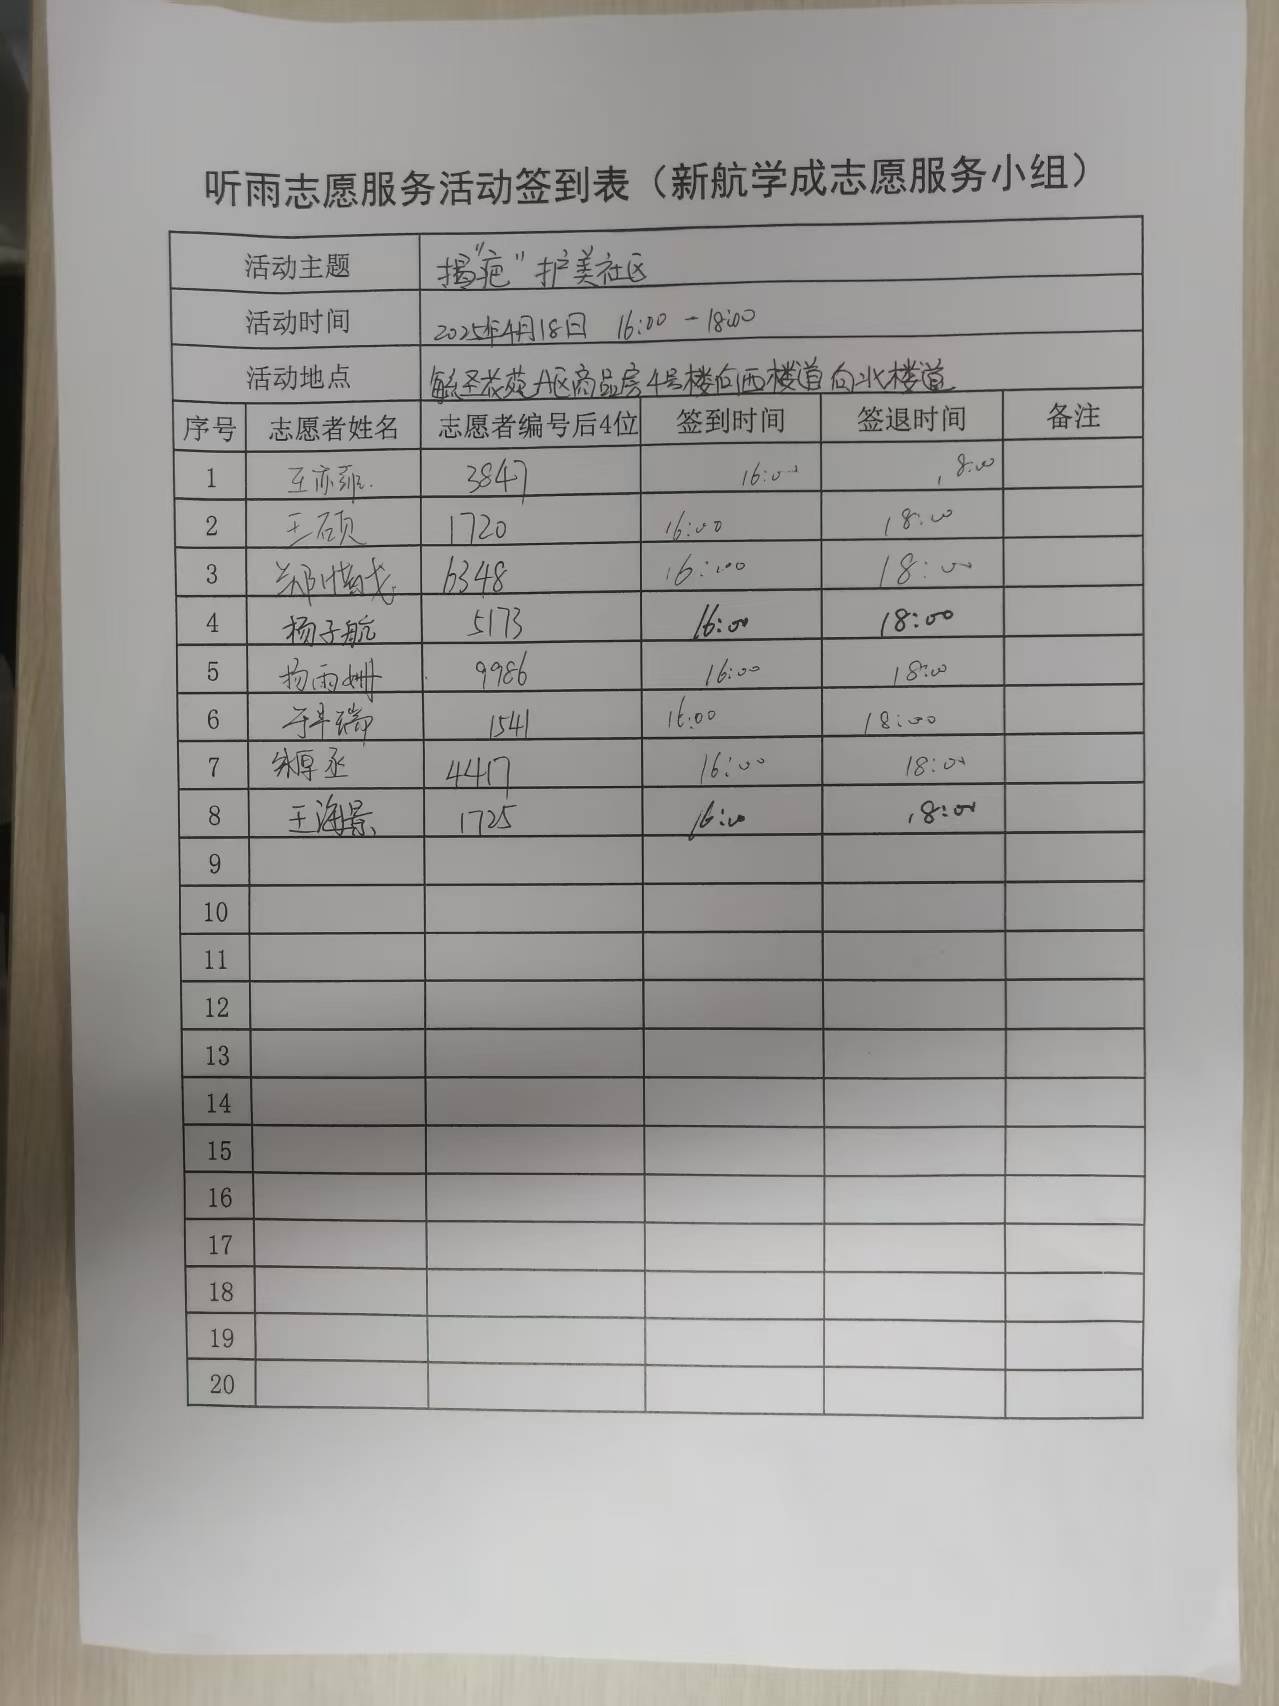 听雨志愿服务活动签到表（新航学成志愿服务小组）
活动主题 揭“疤”护美社区
活动时间 2025年4月18日 16:00-18:00
活动地点 毓圣花苑A区商品房4号楼向西楼道向北楼道
序号 志愿者姓名 志愿者编号后4位 签到时间 签退时间 备注
1 王亦菲 3847 16:00 18:00
2 王硕 1720 16:00 18:00
3 郑 6348 16:00 18:00
4 杨子航 5173 16:00 18:00
5 杨雨姗 9986 16:00 18:00
6 于丰瑞 1541 16:00 18:00
7 朱厚丞 4417 16:00 18:00
8 王海景 1725 16:00 18:00
9
10
11
12
13
14
15
16
17
18
19
20